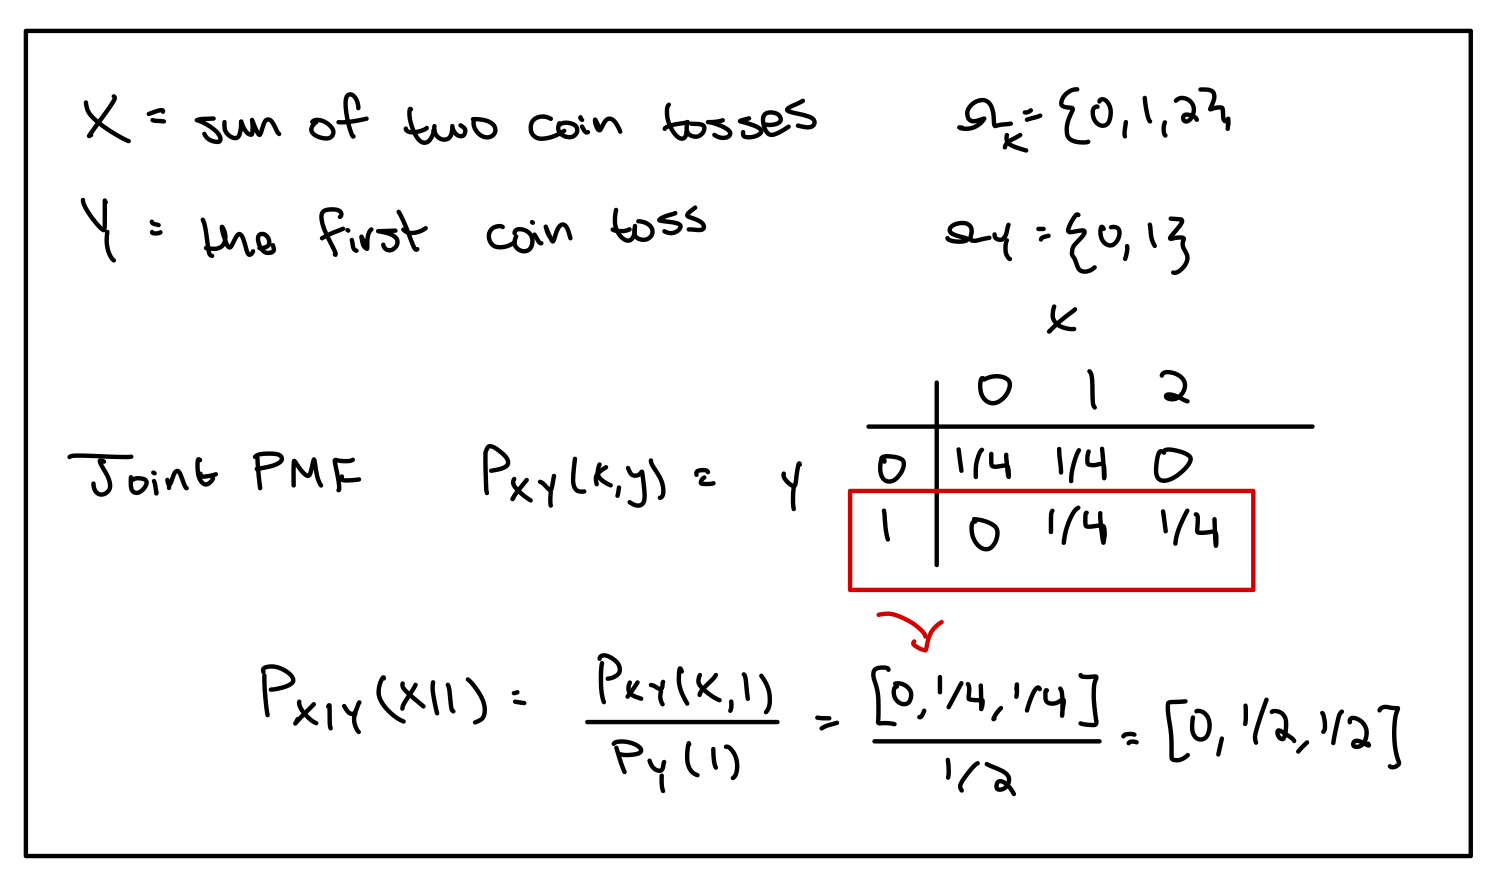 X = sum of two coin tosses Ω_X = {0, 1, 2}
Y = the first coin toss Ω_Y = {0, 1}
X
0 1 2
Joint PMF P_XY(x,y) = Y 0 1/4 1/4 0
1 0 1/4 1/4
P_X|Y(X|1) = P_XY(X,1) / P_Y(1) = [0, 1/4, 1/4] / 1/2 = [0, 1/2, 1/2]